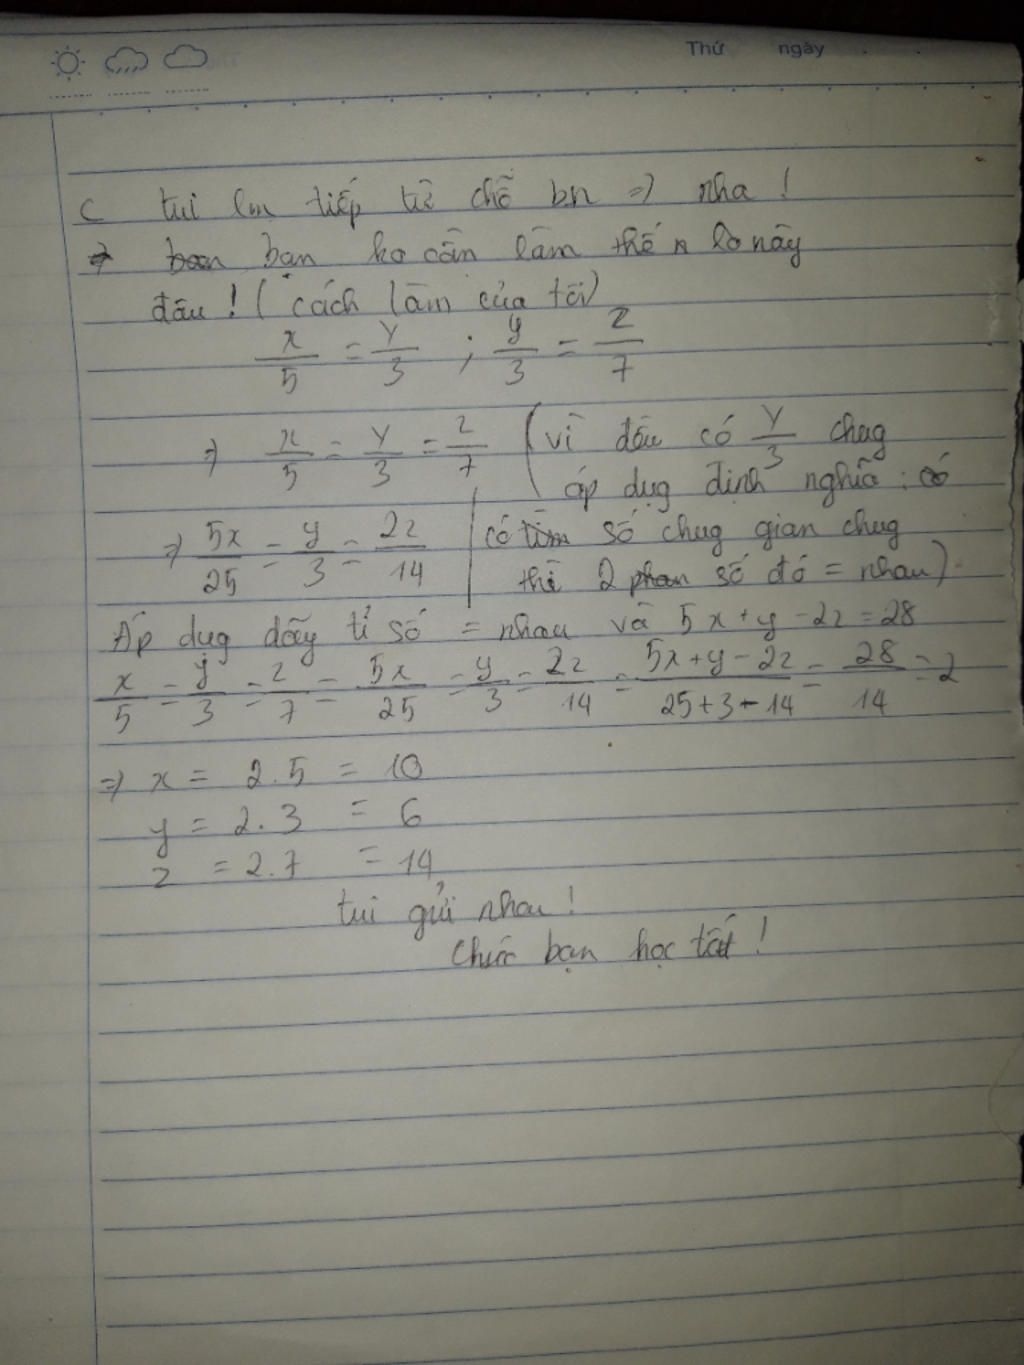 Thứ ngày
C tui lm tiếp từ chỗ bn => nha !
=> bạn ko cần làm thế n lo này
đâu ! ( cách làm của tôi)
x/5 = y/3 ; y/3 = z/7
=> x/5 = y/3 = z/7 (vì đều có y/3 chug
áp dụg định nghĩa : có
=> 5x/25 = y/3 = 2z/14 có số chug gian chug
thì 2 phan số đó = nhau)
Áp dụg dãy tỉ số = nhau và 5x + y - 2z = 28
x/5 = y/3 = z/7 = 5x/25 = y/3 = 2z/14 = 5x+y-2z/25+3-14 = 28/14 = 2
=> x = 2.5 = 10
y = 2.3 = 6
z = 2.7 = 14
tui gửi nhau !
Chúc bạn học tốt !